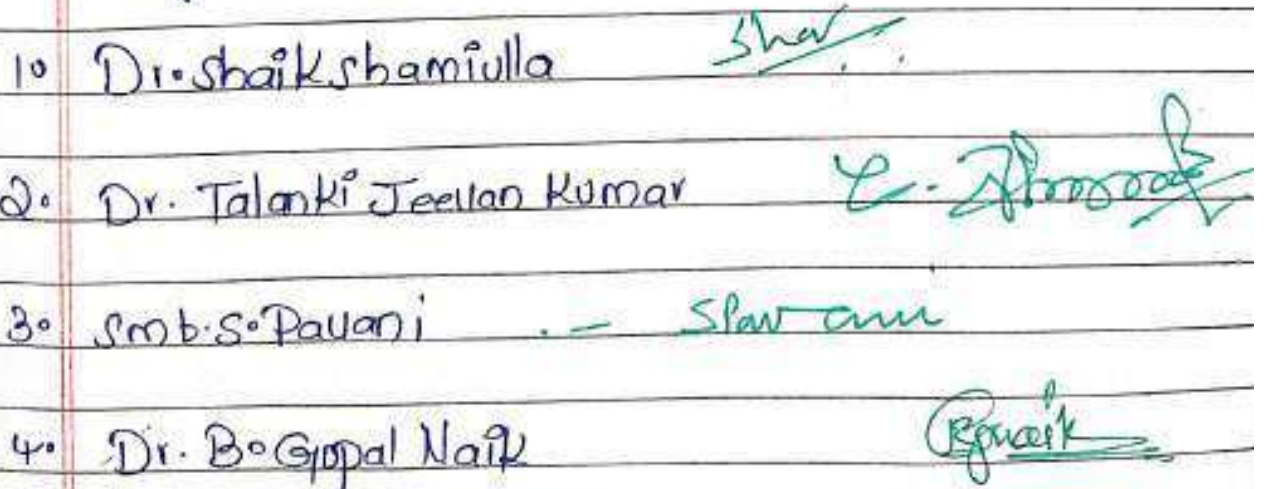 1. Dr. Shaik Shamiulla
2. Dr. Talanki Jeevan Kumar
3. Smt. S. Pavani - SPavani
4. Dr. B. Gopal Naik